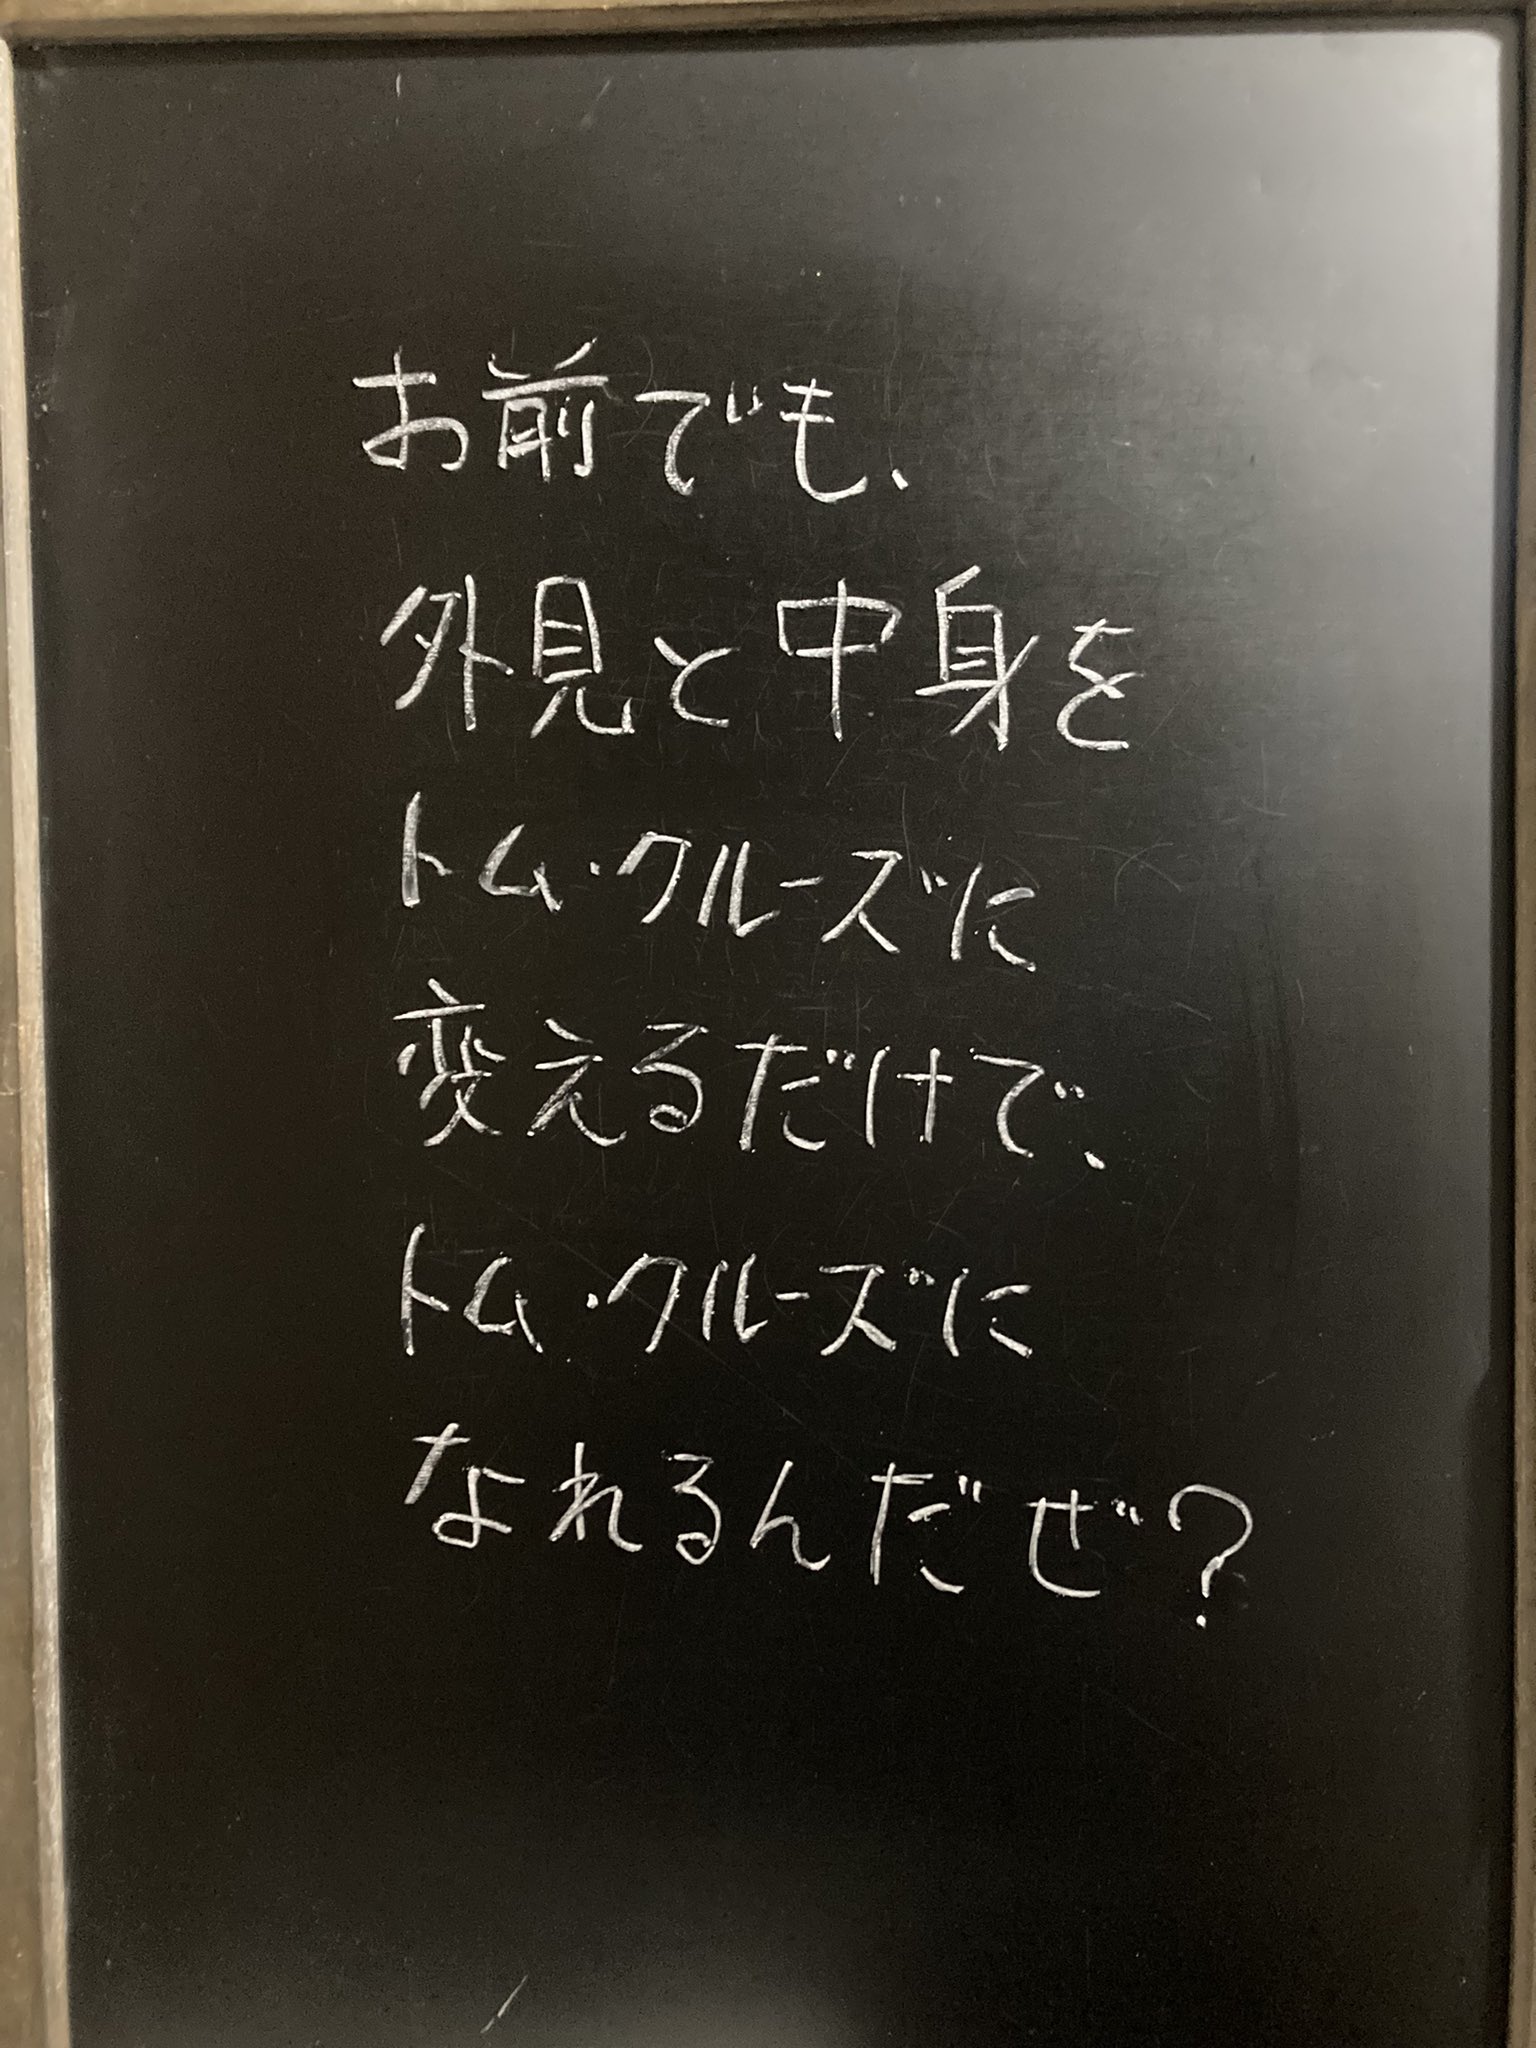 お前でも、
外見と中身を
トム・クルーズに
変えるだけで、
トム・クルーズに
なれるんだぜ？